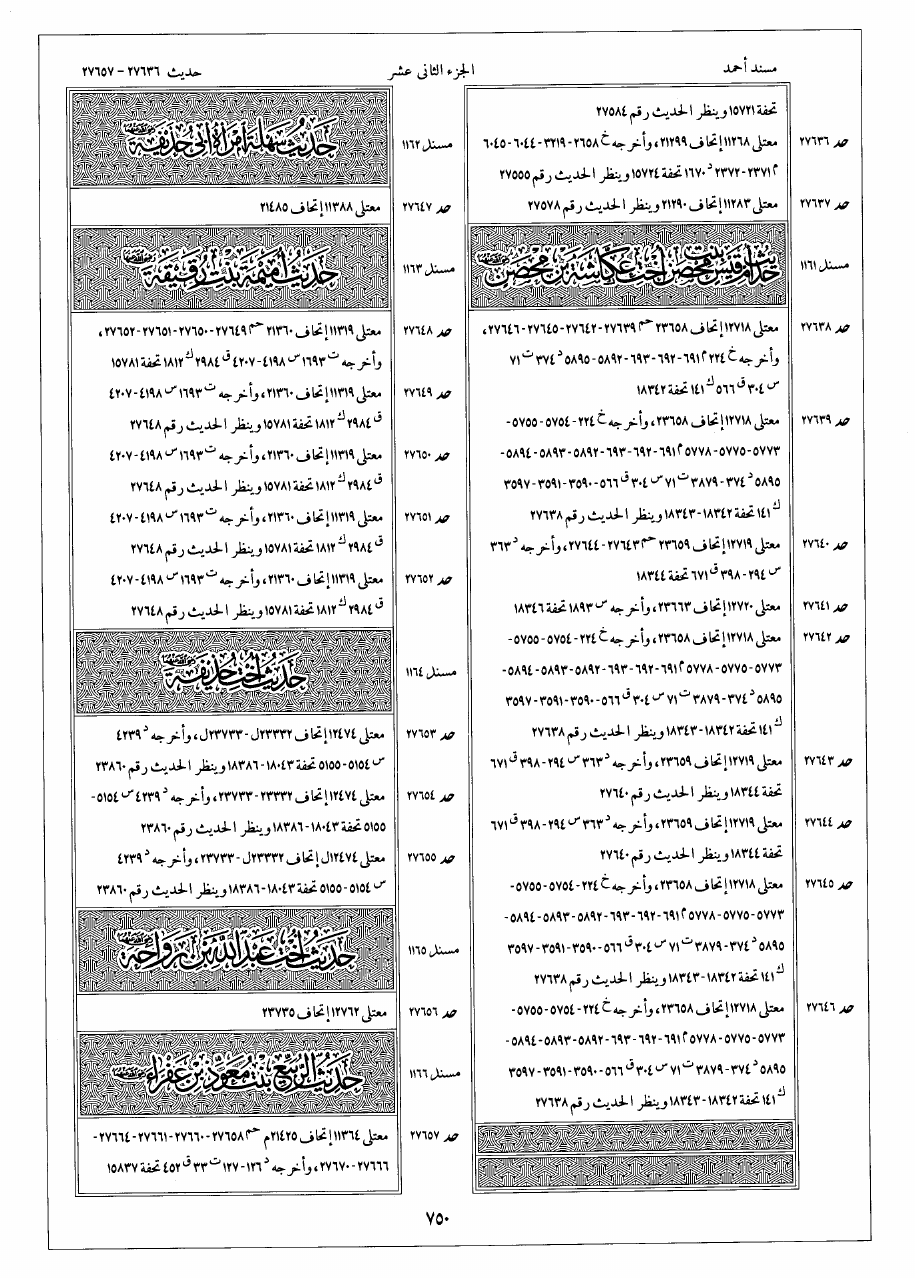 مسند أحمد
الجزء الثانى عشر
حديث ٢٧٦٣٦ - ٢٧٦٥٧
تحفة ١٥٧٢١ وينظر الحديث رقم ٢٧٥٨٤
حد ٢٧٦٣٦ معتلى ١١٢٦٨ إتحاف ٢١٢٩٩، وأخرجه خ ٢٦٥٨-٣٢١٩-٦٠٤٤-٦٠٤٥
م ٢٣٧١-٢٣٧٢ د ١٦٧٠ تحفة ١٥٧٢٤ وينظر الحديث رقم ٢٧٥٥٥
حد ٢٧٦٣٧ معتلى ١١٢٨٣ إتحاف ٢١٢٩٠ وينظر الحديث رقم ٢٧٥٧٨
مسند ١١٦١ حديث أم قيس بنت محصن أخت عكاشة بن محصن
حد ٢٧٦٣٨ معتلى ١٢٧١٨ إتحاف ٢٣٦٥٨ حم ٢٧٦٣٩-٢٧٦٤٢-٢٧٦٤٥-٢٧٦٤٦،
وأخرجه خ ٢٢٤ م ٦٩١-٦٩٢-٦٩٣-٥٨٩٢-٥٨٩٥ د ٣٧٤ ت ٧١
س ٣٠٤ ق ٥٦٦ ك ١٤١ تحفة ١٨٣٤٢
حد ٢٧٦٣٩ معتلى ١٢٧١٨ إتحاف ٢٣٦٥٨، وأخرجه خ ٢٢٤-٥٧٥٤-٥٧٥٥-
٥٧٧٣-٥٧٧٥-٥٧٧٨ م ٦٩١-٦٩٢-٦٩٣-٥٨٩٢-٥٨٩٣-٥٨٩٤-
٥٨٩٥ د ٣٧٤-٣٨٧٩ ت ٧١ س ٣٠٤ ق ٥٦٦-٣٥٩٠-٣٥٩١-٣٥٩٧
ك ١٤١ تحفة ١٨٣٤٢-١٨٣٤٣ وينظر الحديث رقم ٢٧٦٣٨
حد ٢٧٦٤٠ معتلى ١٢٧١٩ إتحاف ٢٣٦٥٩ حم ٢٧٦٤٣-٢٧٦٤٤، وأخرجه د ٣٦٣
س ٢٩٤-٣٩٨ ق ٦٧١ تحفة ١٨٣٤٤
حد ٢٧٦٤١ معتلى ١٢٧٢٠ إتحاف ٢٣٦٦٣، وأخرجه س ١٨٩٣ تحفة ١٨٣٤٦
حد ٢٧٦٤٢ معتلى ١٢٧١٨ إتحاف ٢٣٦٥٨، وأخرجه خ ٢٢٤-٥٧٥٤-٥٧٥٥-
٥٧٧٣-٥٧٧٥-٥٧٧٨ م ٦٩١-٦٩٢-٦٩٣-٥٨٩٢-٥٨٩٣-٥٨٩٤-
٥٨٩٥ د ٣٧٤-٣٨٧٩ ت ٧١ س ٣٠٤ ق ٥٦٦-٣٥٩٠-٣٥٩١-٣٥٩٧
ك ١٤١ تحفة ١٨٣٤٢-١٨٣٤٣ وينظر الحديث رقم ٢٧٦٣٨
حد ٢٧٦٤٣ معتلى ١٢٧١٩ إتحاف ٢٣٦٥٩، وأخرجه د ٣٦٣ س ٢٩٤-٣٩٨ ق ٦٧١
تحفة ١٨٣٤٤ وينظر الحديث رقم ٢٧٦٤٠
حد ٢٧٦٤٤ معتلى ١٢٧١٩ إتحاف ٢٣٦٥٩، وأخرجه د ٣٦٣ س ٢٩٤-٣٩٨ ق ٦٧١
تحفة ١٨٣٤٤ وينظر الحديث رقم ٢٧٦٤٠
حد ٢٧٦٤٥ معتلى ١٢٧١٨ إتحاف ٢٣٦٥٨، وأخرجه خ ٢٢٤-٥٧٥٤-٥٧٥٥-
٥٧٧٣-٥٧٧٥-٥٧٧٨ م ٦٩١-٦٩٢-٦٩٣-٥٨٩٢-٥٨٩٣-٥٨٩٤-
٥٨٩٥ د ٣٧٤-٣٨٧٩ ت ٧١ س ٣٠٤ ق ٥٦٦-٣٥٩٠-٣٥٩١-٣٥٩٧
ك ١٤١ تحفة ١٨٣٤٢-١٨٣٤٣ وينظر الحديث رقم ٢٧٦٣٨
حد ٢٧٦٤٦ معتلى ١٢٧١٨ إتحاف ٢٣٦٥٨، وأخرجه خ ٢٢٤-٥٧٥٤-٥٧٥٥-
٥٧٧٣-٥٧٧٥-٥٧٧٨ م ٦٩١-٦٩٢-٦٩٣-٥٨٩٢-٥٨٩٣-٥٨٩٤-
٥٨٩٥ د ٣٧٤-٣٨٧٩ ت ٧١ س ٣٠٤ ق ٥٦٦-٣٥٩٠-٣٥٩١-٣٥٩٧
ك ١٤١ تحفة ١٨٣٤٢-١٨٣٤٣ وينظر الحديث رقم ٢٧٦٣٨
مسند ١١٦٢ حديث سهلة امرأة أبى حذيفة
حد ٢٧٦٤٧ معتلى ١١٣٨٨ إتحاف ٢١٤٨٥
مسند ١١٦٣ حديث أميمة بنت رقيقة
حد ٢٧٦٤٨ معتلى ١١٣١٩ إتحاف ٢١٣٦٠ حم ٢٧٦٤٩-٢٧٦٥٠-٢٧٦٥١-٢٧٦٥٢،
وأخرجه ت ١٦٩٣ س ٤١٩٨-٤٢٠٧ ق ٢٩٨٤ ك ١٨١٢ تحفة ١٥٧٨١
حد ٢٧٦٤٩ معتلى ١١٣١٩ إتحاف ٢١٣٦٠، وأخرجه ت ١٦٩٣ س ٤١٩٨-٤٢٠٧
ق ٢٩٨٤ ك ١٨١٢ تحفة ١٥٧٨١ وينظر الحديث رقم ٢٧٦٤٨
حد ٢٧٦٥٠ معتلى ١١٣١٩ إتحاف ٢١٣٦٠، وأخرجه ت ١٦٩٣ س ٤١٩٨-٤٢٠٧
ق ٢٩٨٤ ك ١٨١٢ تحفة ١٥٧٨١ وينظر الحديث رقم ٢٧٦٤٨
حد ٢٧٦٥١ معتلى ١١٣١٩ إتحاف ٢١٣٦٠، وأخرجه ت ١٦٩٣ س ٤١٩٨-٤٢٠٧
ق ٢٩٨٤ ك ١٨١٢ تحفة ١٥٧٨١ وينظر الحديث رقم ٢٧٦٤٨
حد ٢٧٦٥٢ معتلى ١١٣١٩ إتحاف ٢١٣٦٠، وأخرجه ت ١٦٩٣ س ٤١٩٨-٤٢٠٧
ق ٢٩٨٤ ك ١٨١٢ تحفة ١٥٧٨١ وينظر الحديث رقم ٢٧٦٤٨
مسند ١١٦٤ حديث أخت حذيفة
حد ٢٧٦٥٣ معتلى ١٢٤٧٤ إتحاف ٢٣٣٣٢ل-٢٣٧٣٣ل، وأخرجه د ٤٢٣٩
س ٥١٥٤-٥١٥٥ تحفة ١٨٠٤٣-١٨٣٨٦ وينظر الحديث رقم ٢٣٨٦٠
حد ٢٧٦٥٤ معتلى ١٢٤٧٤ إتحاف ٢٣٣٣٢-٢٣٧٣٣، وأخرجه د ٤٢٣٩ س ٥١٥٤-
٥١٥٥ تحفة ١٨٠٤٣-١٨٣٨٦ وينظر الحديث رقم ٢٣٨٦٠
حد ٢٧٦٥٥ معتلى ١٢٤٧٤ل إتحاف ٢٣٣٣٢ل-٢٣٧٣٣، وأخرجه د ٤٢٣٩
س ٥١٥٤-٥١٥٥ تحفة ١٨٠٤٣-١٨٣٨٦ وينظر الحديث رقم ٢٣٨٦٠
مسند ١١٦٥ حديث أخت عبد الله بن رواحة
حد ٢٧٦٥٦ معتلى ١٢٧٦٢ إتحاف ٢٣٧٣٥
مسند ١١٦٦ حديث الربيع بنت معوذ بن عفراء
حد ٢٧٦٥٧ معتلى ١١٣٦٤ إتحاف ٢١٤٢٥م حم ٢٧٦٥٨-٢٧٦٦٠-٢٧٦٦١-٢٧٦٦٤-
٢٧٦٦٦-٢٧٦٧٠، وأخرجه د ١٢٦-١٢٧ ت ٣٣ ق ٤٥٢ تحفة ١٥٨٣٧
٧٥٠